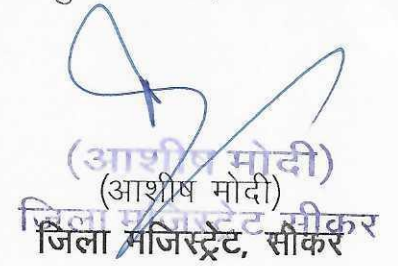 (आशीष मोदी)
(आशीष मोदी)
जिला मजिस्ट्रेट, सीकर
जिला मजिस्ट्रेट, सीकर